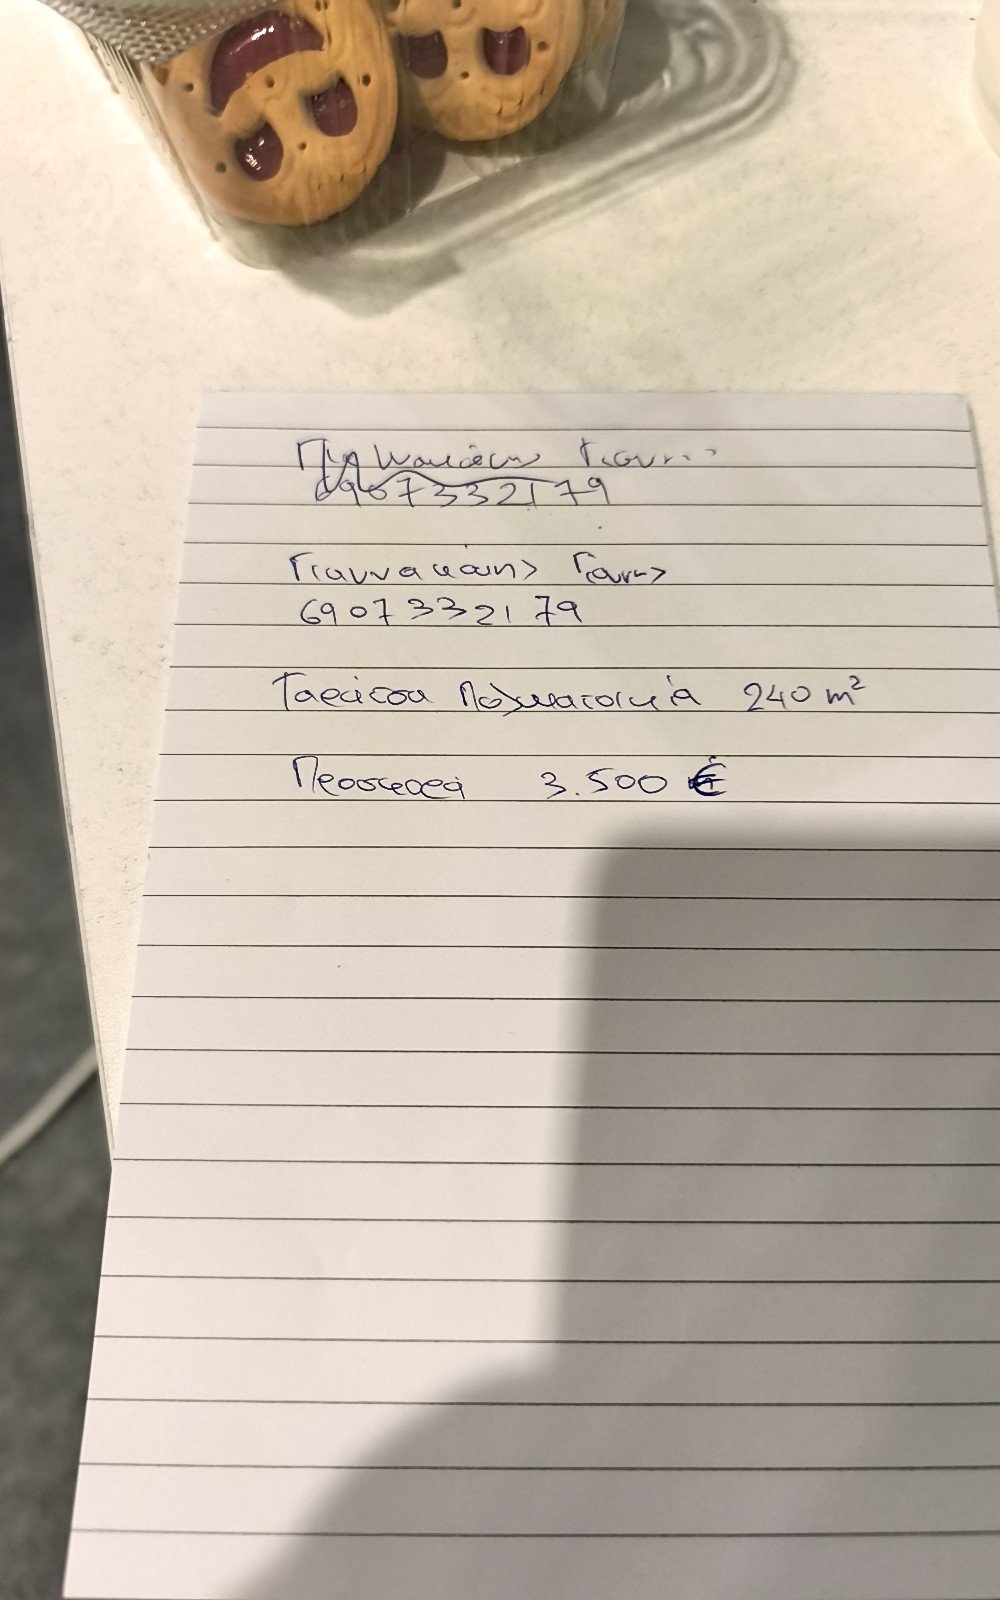 Γιαννακάκης Γιάννης
6907332179
Γιαννακάκης Γιάννης
6907332179
Ταράτσα Πολυκατοικία 240 m²
Προσφορά 3.500 €